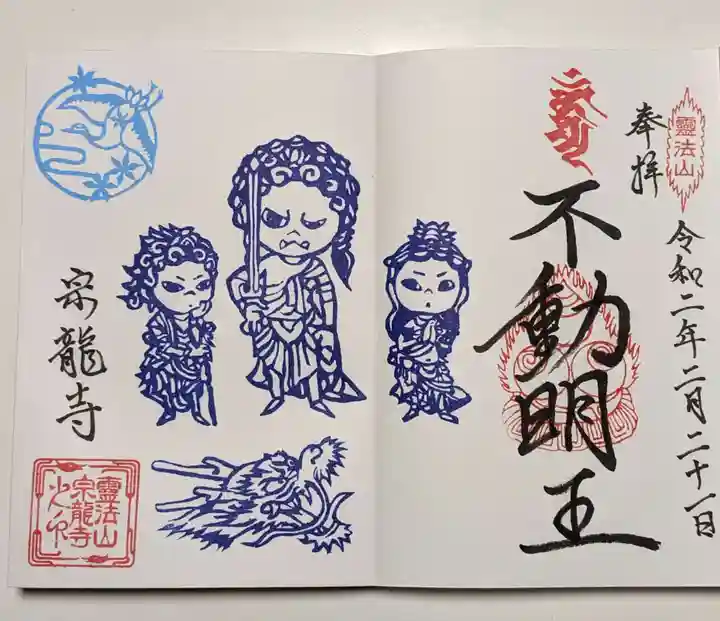 奉拝
靈法山
令和二年二月二十一日
不動明王
宗龍寺
靈法山
宗龍寺
之印